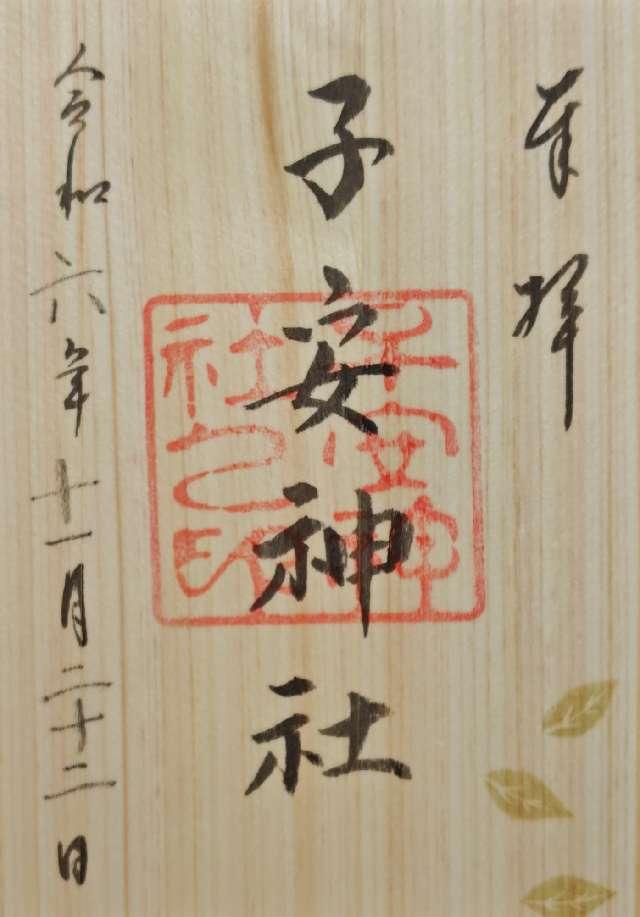 奉拝
子安神社
子安神社之印
令和六年十一月二十二日